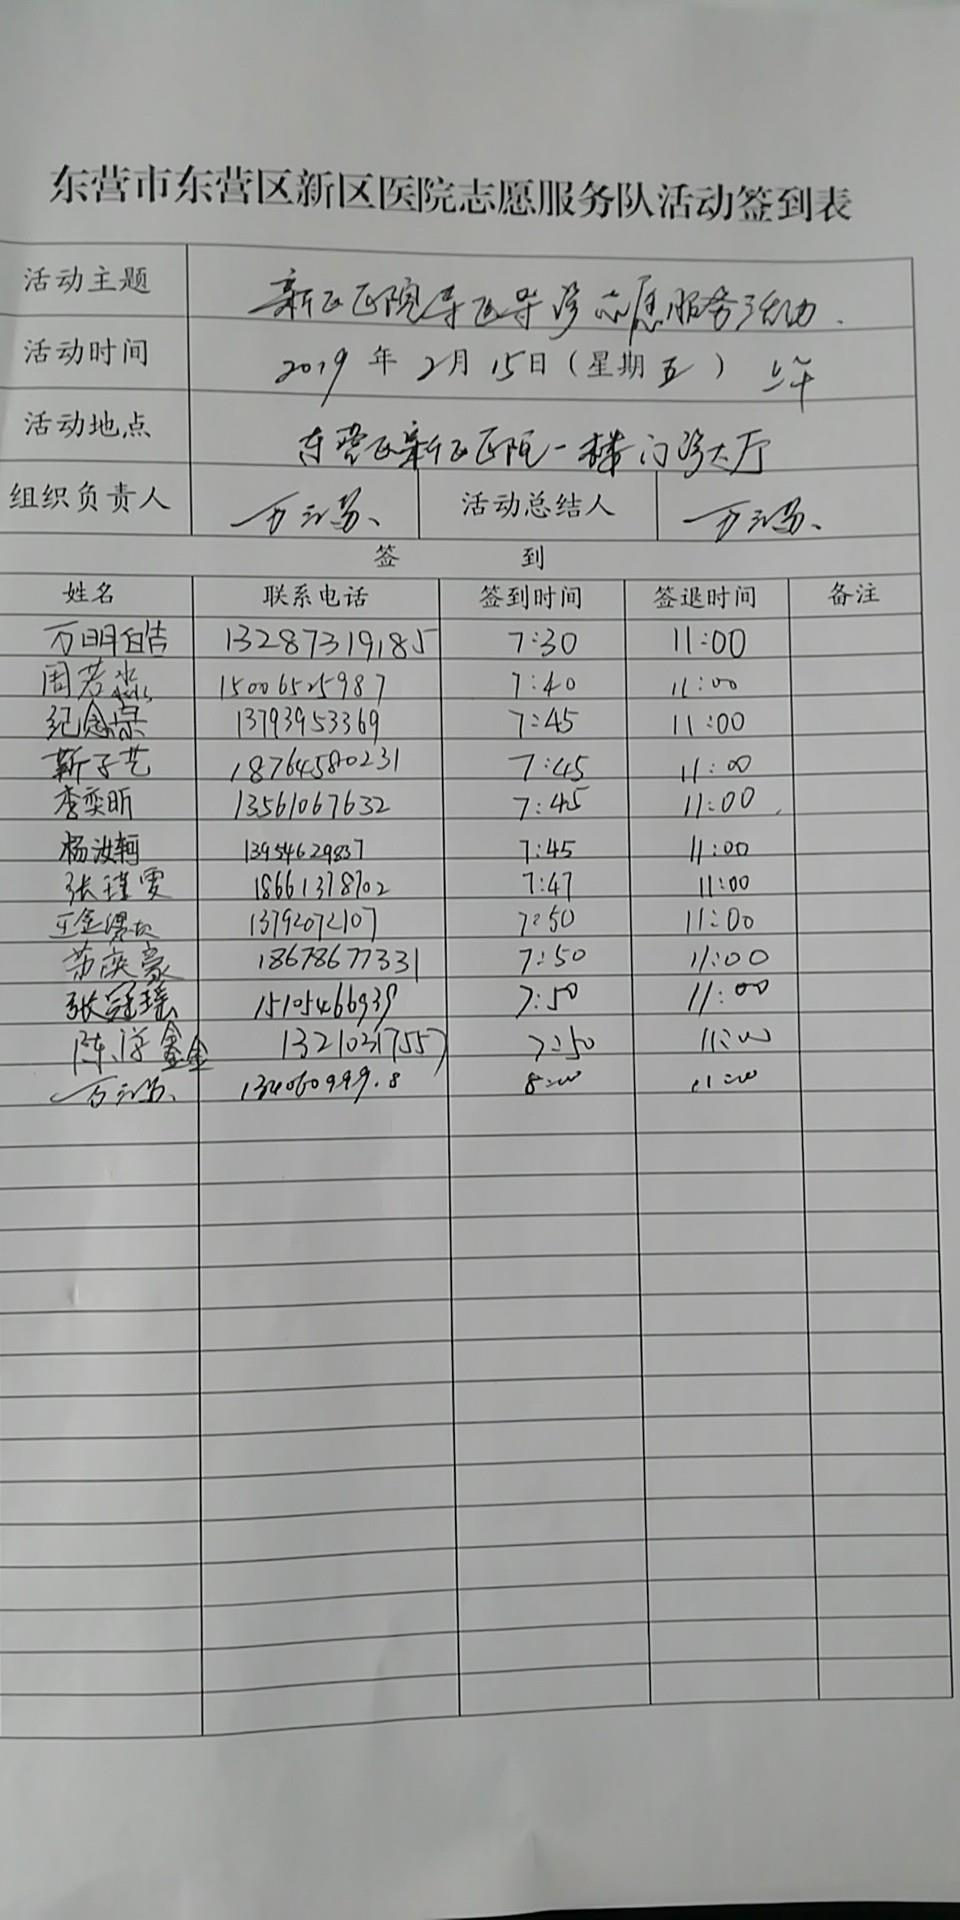 东营市东营区新区医院志愿服务队活动签到表
活动主题 新区医院导医导诊志愿服务活动.
活动时间 2019年2月15日(星期五) 上午
活动地点 东营区新区医院一楼门诊大厅
组织负责人 万 活动总结人 万
签 到
姓名 联系电话 签到时间 签退时间 备注
万明皓 13287319185 7:30 11:00
周若水 15006525987 7:40 11:00
纪念 13793953369 7:45 11:00
靳子艺 18764580231 7:45 11:00
李奕昕 13561067632 7:45 11:00
杨汝轲 13954629837 7:45 11:00
张瑾雯 18661378702 7:47 11:00
王金 13792072107 7:50 11:00
苏奕豪 18678677331 7:50 11:00
张冠瑶 15105466939 7:50 11:00
陈 鑫 13210317557 7:50 11:00
万 8:00 11:00